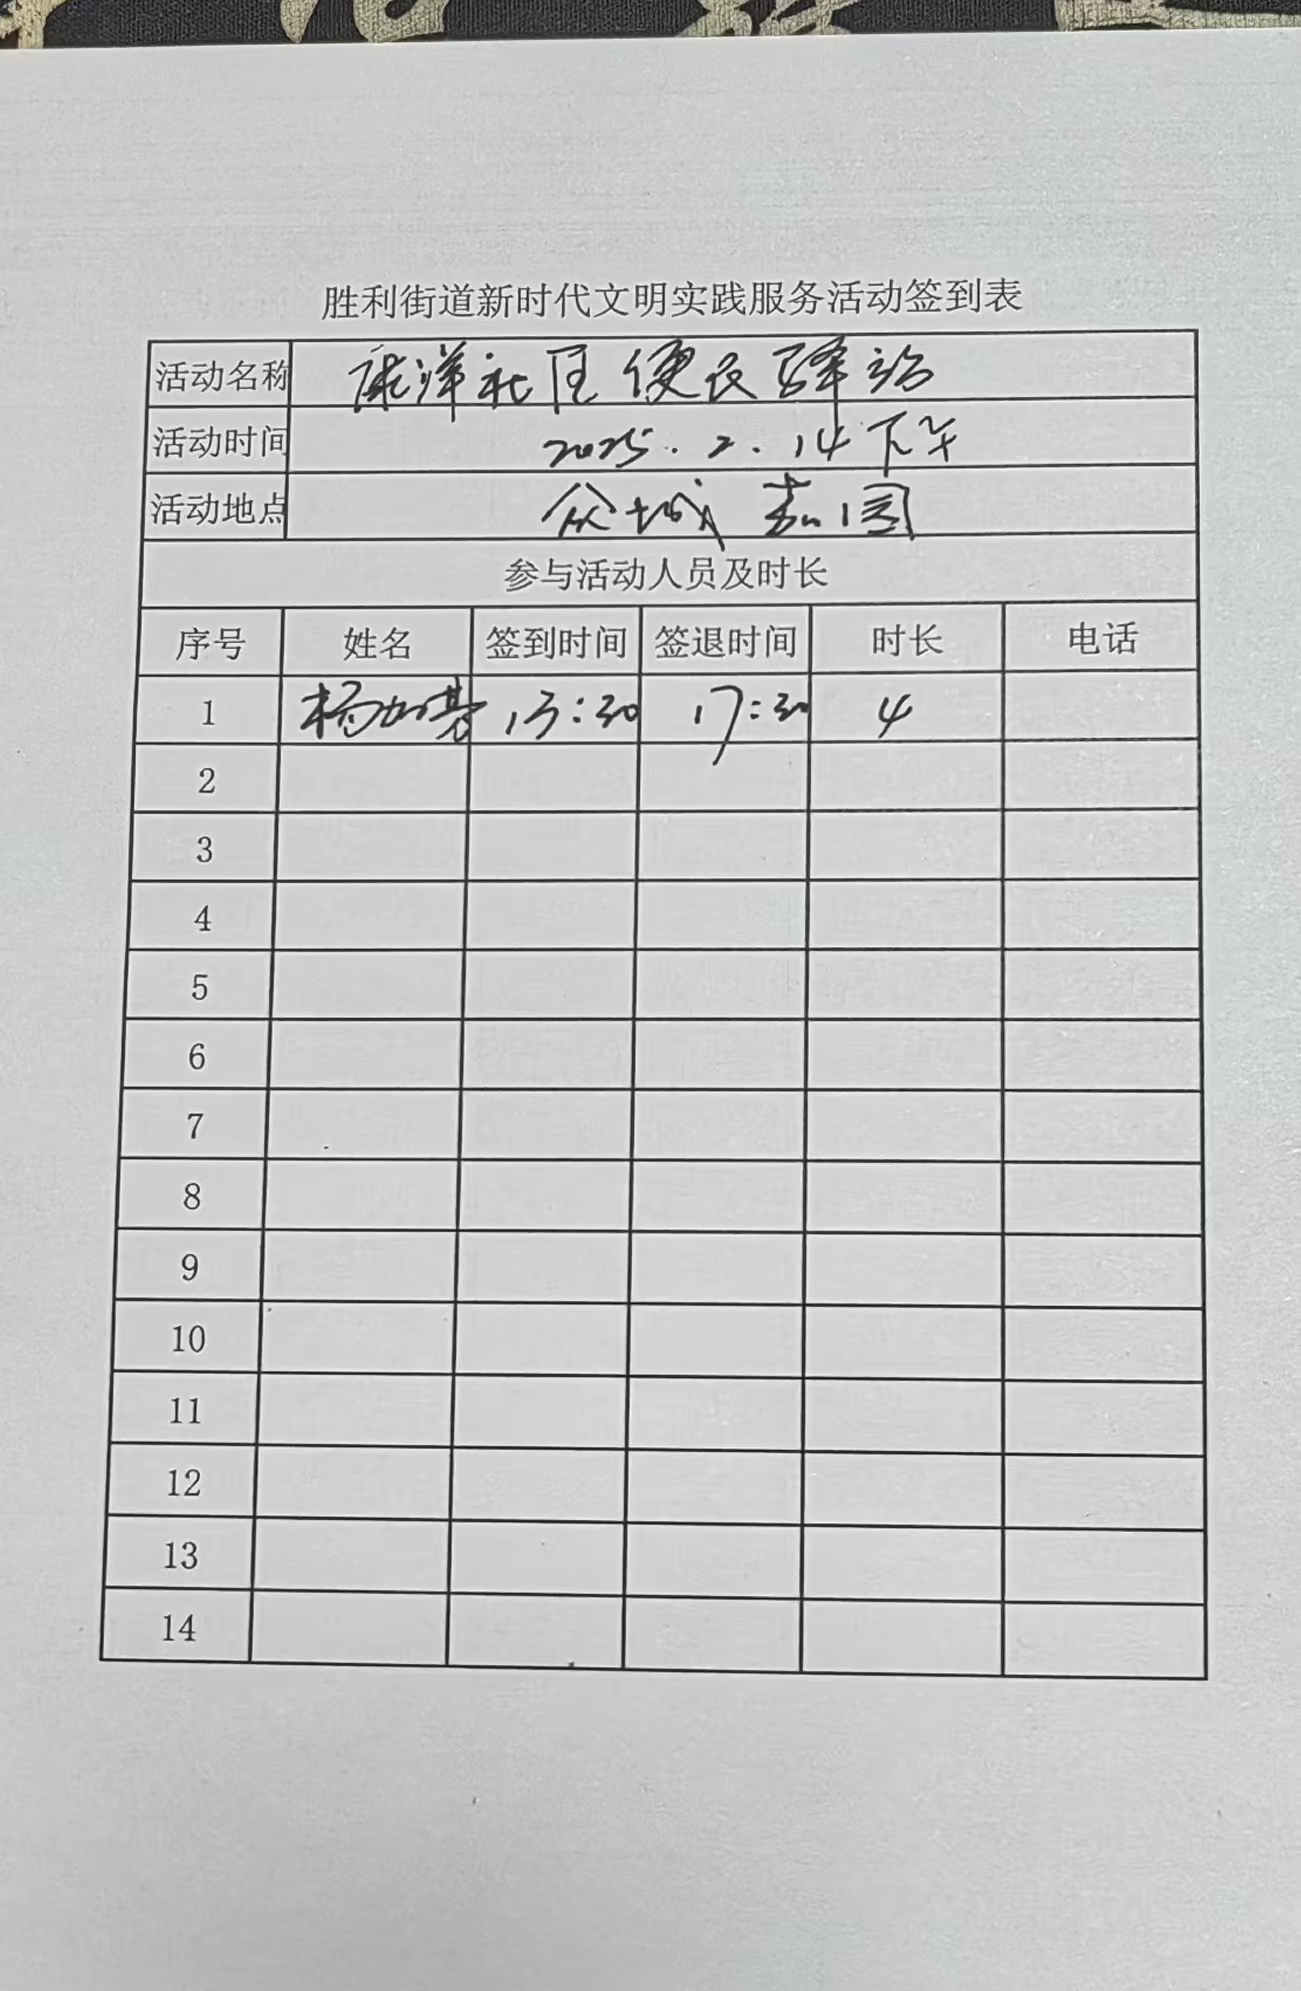 胜利街道新时代文明实践服务活动签到表
活动名称 康洋社区便民驿站
活动时间 2025.2.14下午
活动地点 众城嘉园
参与活动人员及时长
序号 姓名 签到时间 签退时间 时长 电话
1 杨如基 13:30 17:30 4
2
3
4
5
6
7
8
9
10
11
12
13
14